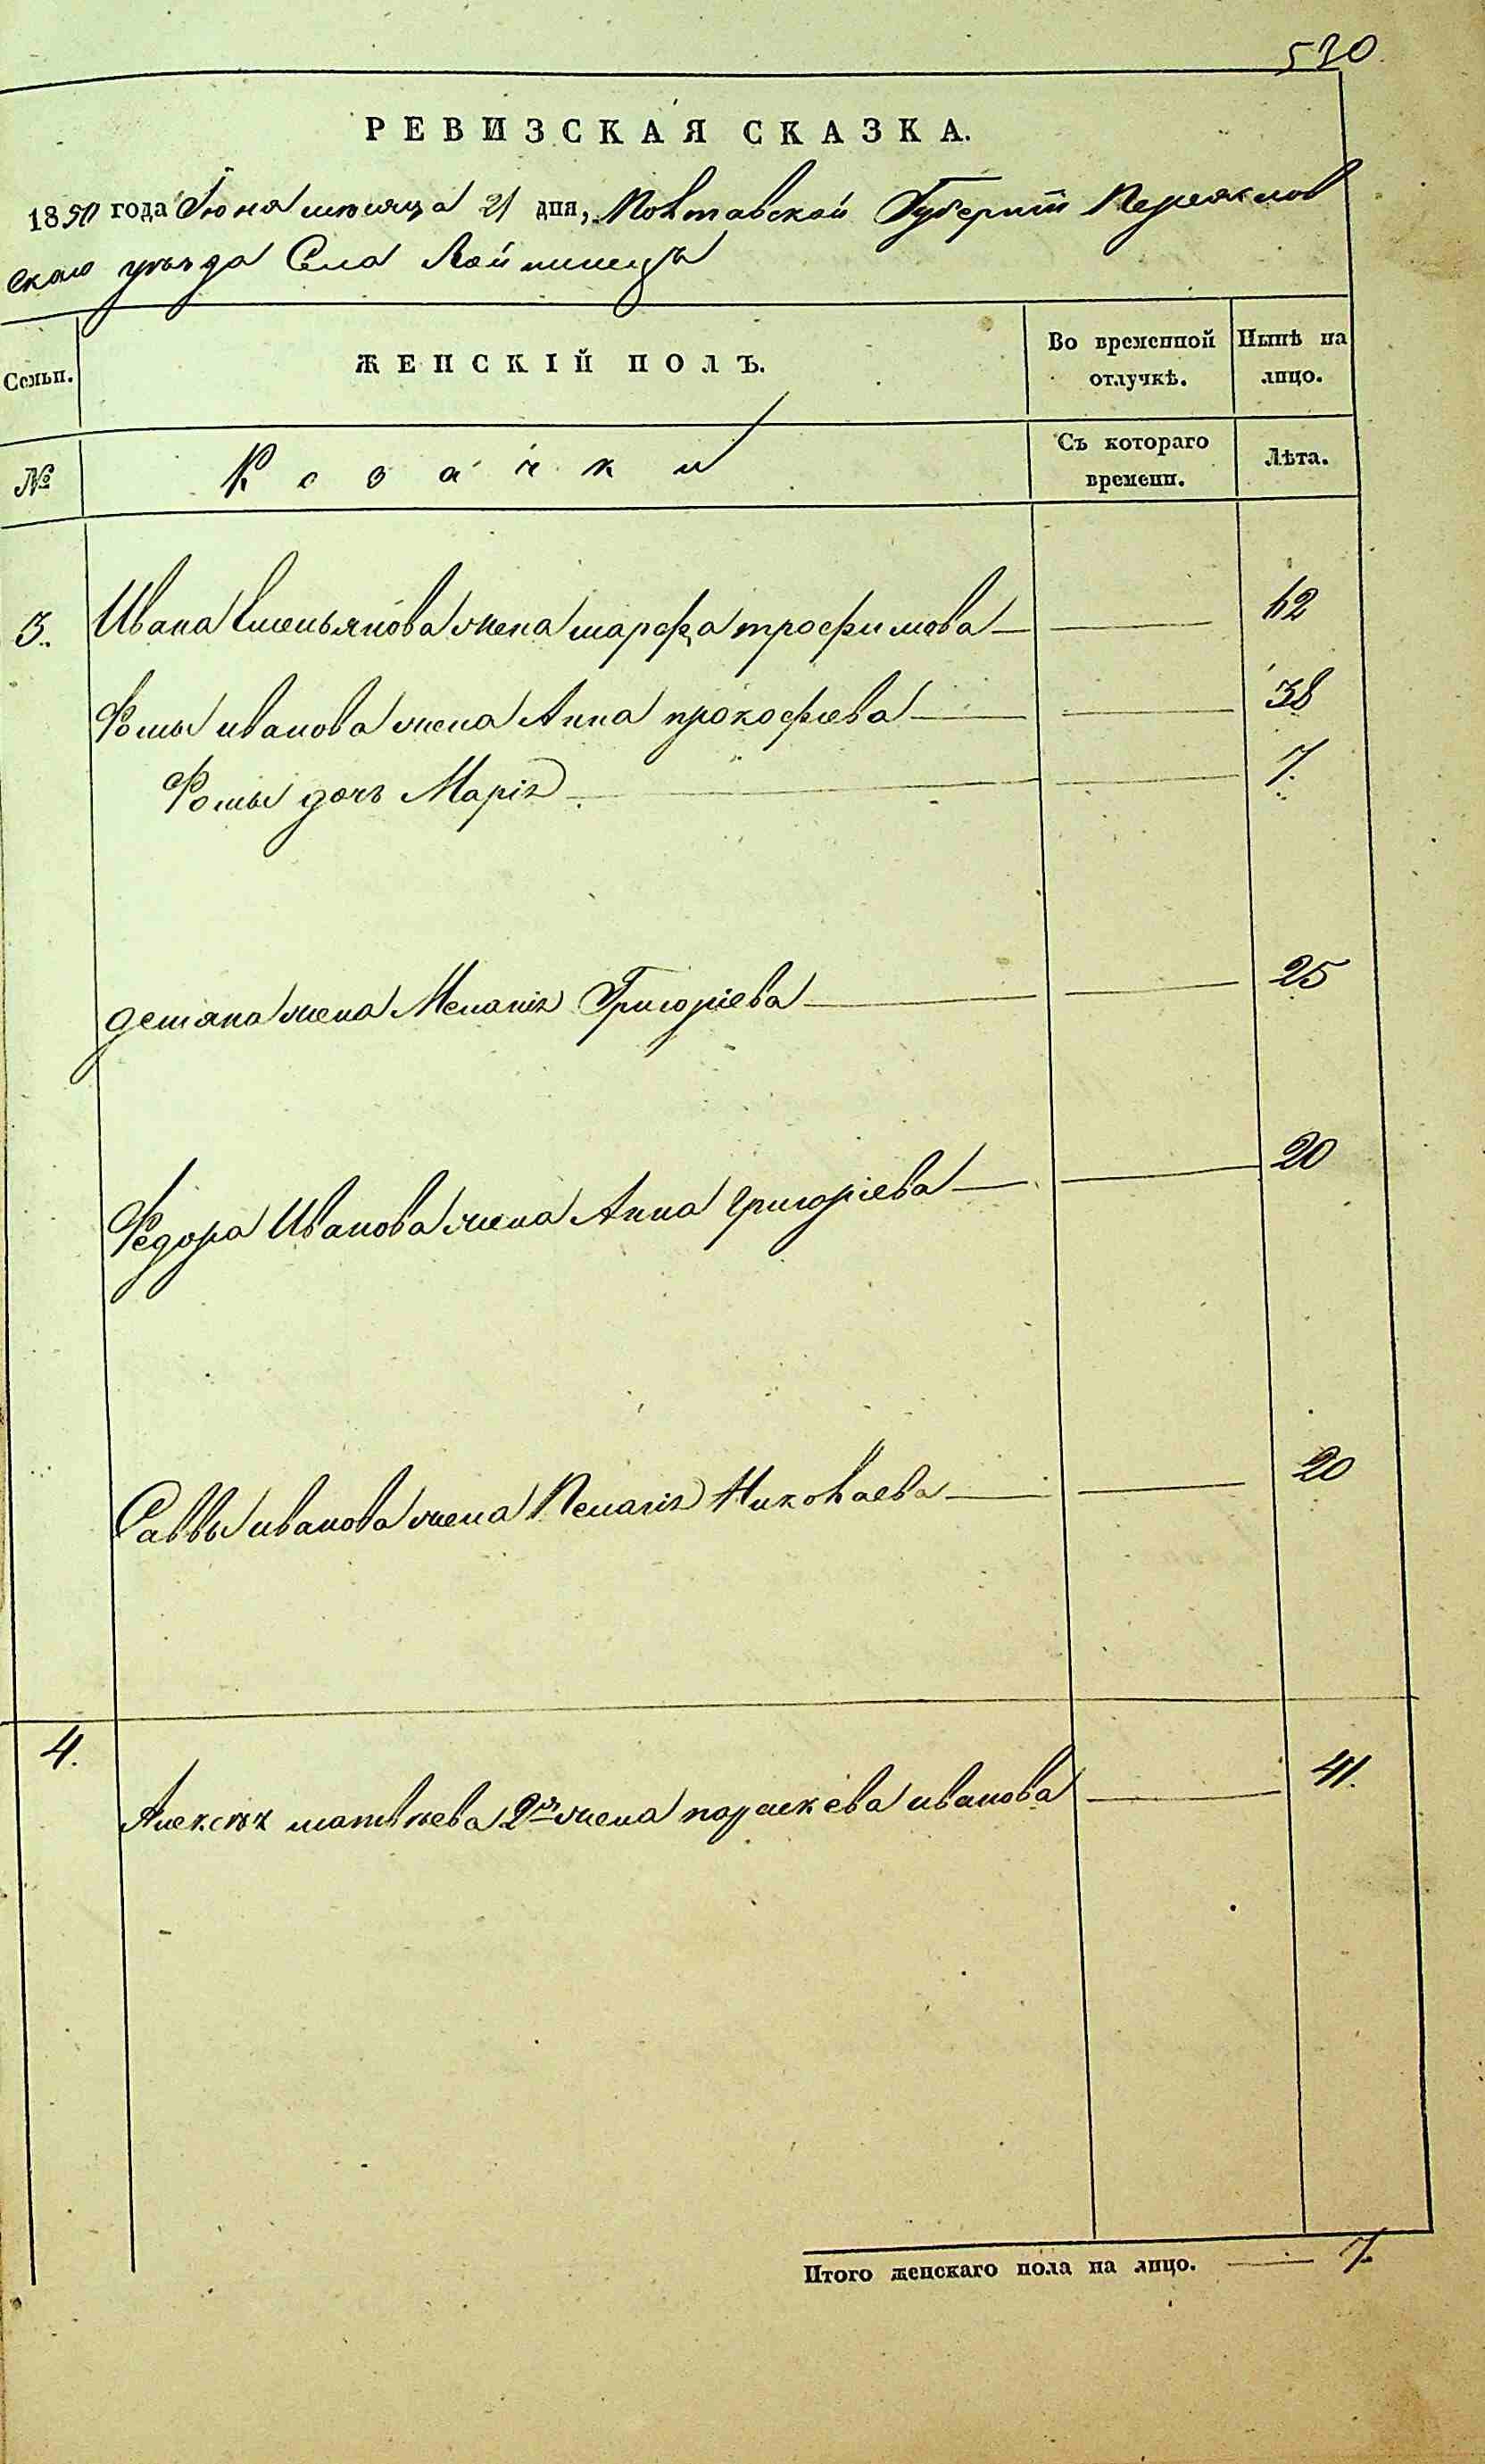 530
РЕВИЗСКАЯ СКАЗКА.
1850 года Іюня мѣсяца 21 дня, Полтавской Губерніи Переяслов
скаго уѣзда Села
Семьи. ЖЕНСКІЙ ПОЛЪ. Во временной отлучкѣ. Нынѣ на лицо.
№ Козачки Съ котораго времени. Лѣта.
3. Ивана Емельянова жена марфа трофимова 62
Фомы иванова жена Анна прокофіева 38
Фомы дочь Марія 7.
демяна жена Меланія Григоріева 25
Федора Иванова жена Анна григоріева 20
Саввы иванова жена Пелагія Николаева 20
4. Алексѣя матвѣева 2я жена параскева иванова 41.
Итого женскаго пола на лицо. 7.